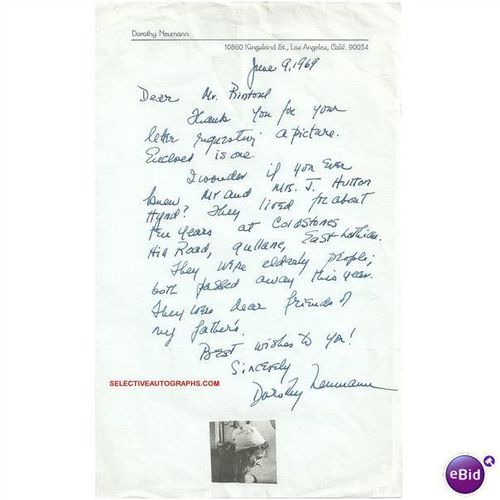 Dorothy Neumann
10860 Kingsland St., Los Angeles, Calif. 90034
June 9, 1969
Dear Mr.
Thank you for your
letter requesting a picture.
Enclosed is one.
I wonder if you ever
knew Mr and Mrs. J. Hutton
Hynd? They lived for about
ten years at Coldstones
Hill Road, Gullane, East Lothian.
They were elderly people;
both passed away this year.
They were dear friends of
my father's.
Best wishes to you!
Sincerely
Dorothy Neumann
SELECTIVEAUTOGRAPHS.COM
eBid